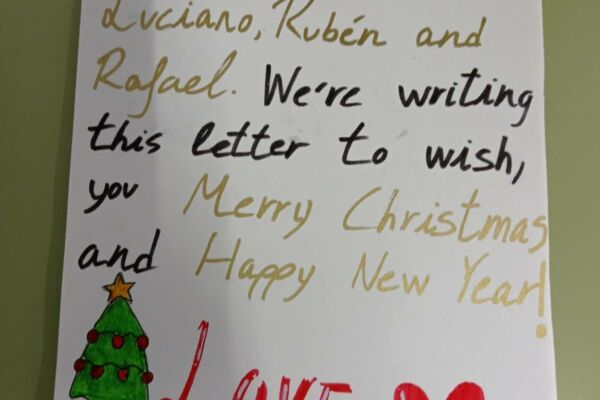 Luciano, Rubén and
Rafael. We're writing
this letter to wish,
you Merry Christmas
and Happy New Year!
LOVE